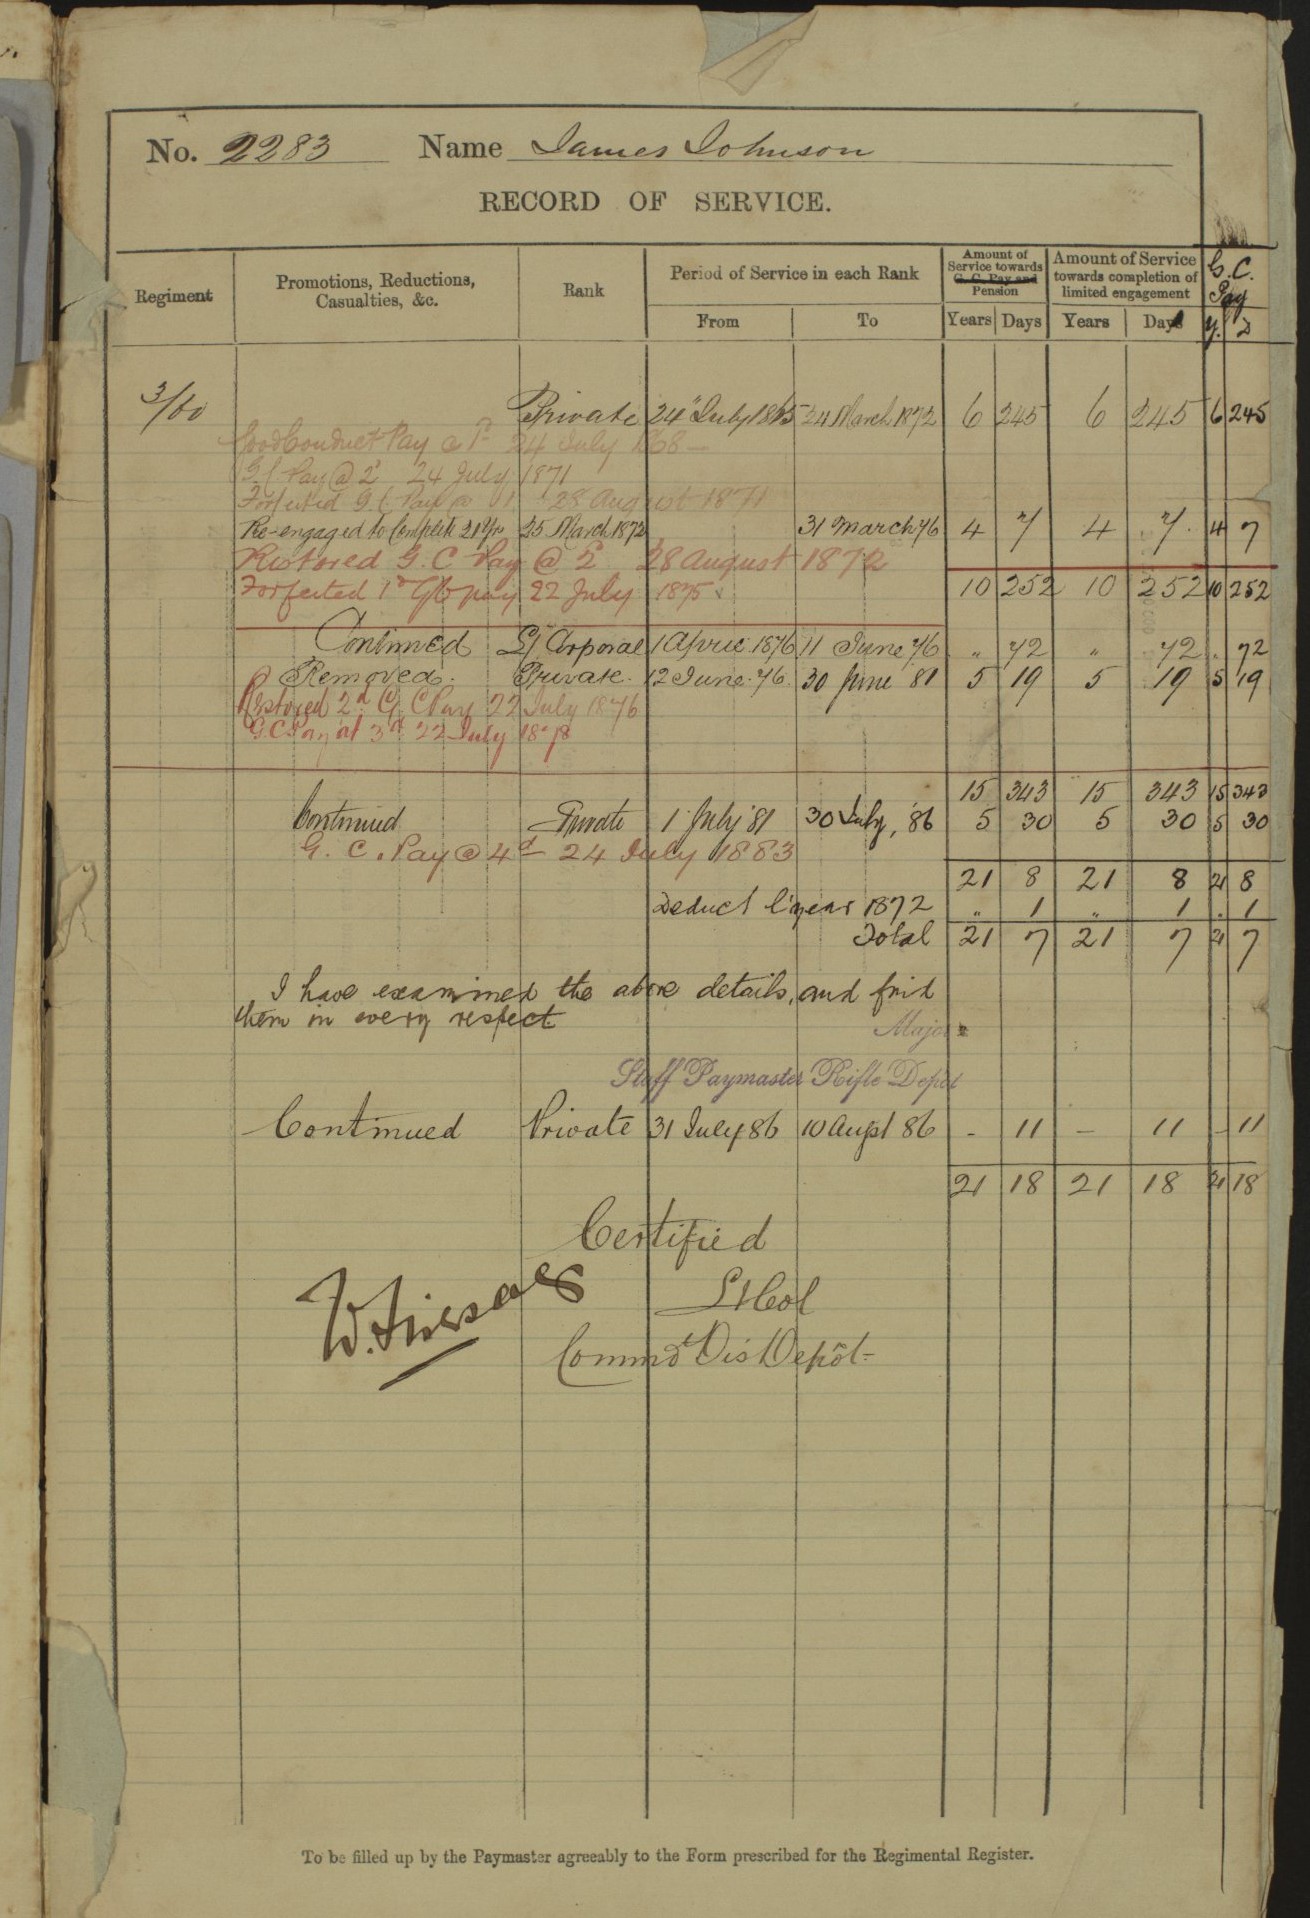 No. 2283 Name James Johnson
RECORD OF SERVICE.
Regiment Promotions, Reductions, Casualties, &c. Rank Period of Service in each Rank Amount of Service towards G. C. Pay and Pension Amount of Service towards completion of limited engagement G. C. Pay
From To Years Days Years Days Y. D
3/60 Private 24" July 1865 24 March 1872 6 245 6 245 6 245
Good Conduct Pay @ 1d 24 July 1868 —
G C Pay @ 2d 24 July 1871
Forfeited G C Pay @ 28 August 1871
Re-engaged to Complete 21 Yrs 25 March 1872 31 March 76 4 7 4 7 4 7
Restored G. C Pay @ 2 28 August 1872
Forfeited 1d pay 22 July 1875
10 252 10 252 10 252
Continued L/ Corporal 1 April 1876 11 June 76 " 72 " 72 . 72
Removed. Private. 12 June. 76. 30 June 81 5 19 5 19 5 19
Restored 2d G C Pay 22 July 1876
G.C Pay at 3d 22 July 1878
15 343 15 343 15 343
Continued Private 1 July '81 30 July, '86 5 30 5 30 5 30
G. C. Pay @ 4d — 24 July 1883
21 8 21 8 21 8
Deduct l'year 1872 " 1 " 1 . 1
Total 21 7 21 7 21 7
I have examined the above details, and find
them in every respect
Major
Staff Paymaster Rifle Depot
Continued Private 31 July 86 10 Augst 86 - 11 — 11 - 11
21 18 21 18 21 18
Certified
Lt Col
Commdt Dis Depôt =
To be filled up by the Paymaster agreeably to the Form prescribed for the Regimental Register.